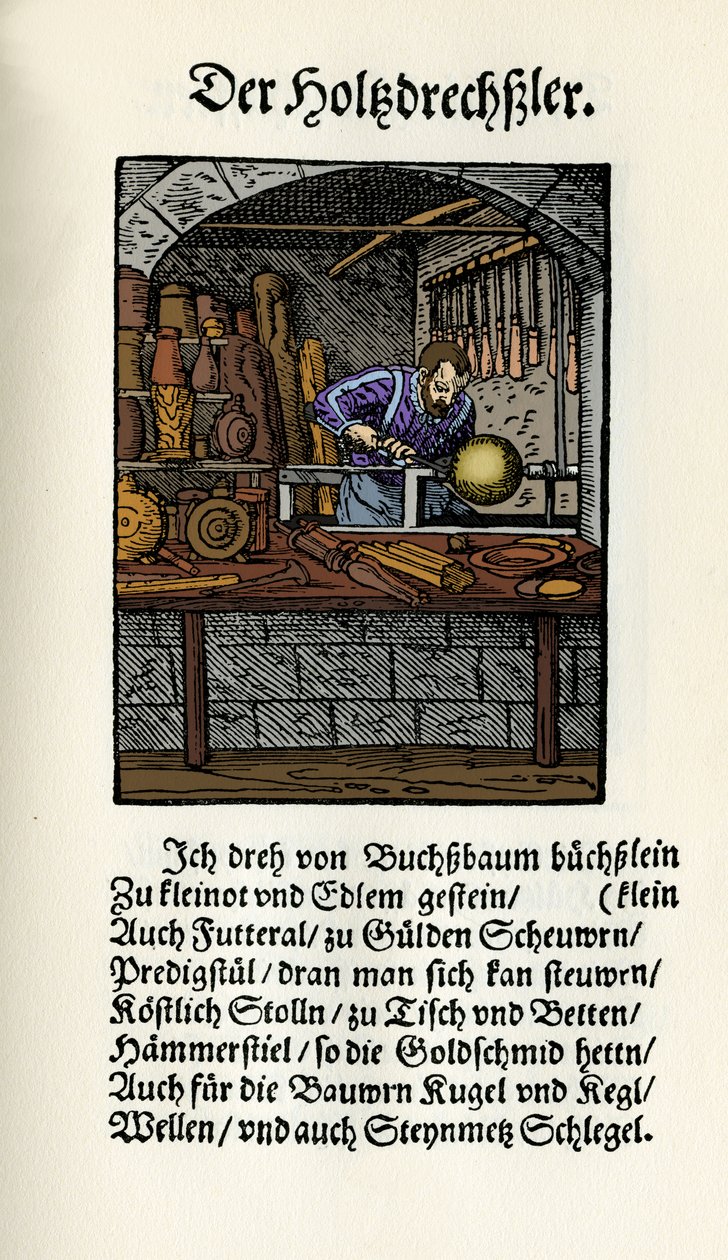 Der Holtzdrechßler.
Ich dreh von Buchßbaum büchßlein
Zu kleinot vnd Edlem gestein/ (klein
Auch Futteral/ zu Gülden Scheuwrn/
Predigstül/ dran man sich kan steuwrn/
Köstlich Stolln/ zu Tisch vnd Betten/
Hämmerstiel/ so die Goldschmid hettn/
Auch für die Bauwrn Kugel vnd Kegl/
Wellen/ vnd auch Steynmetz Schlegel.